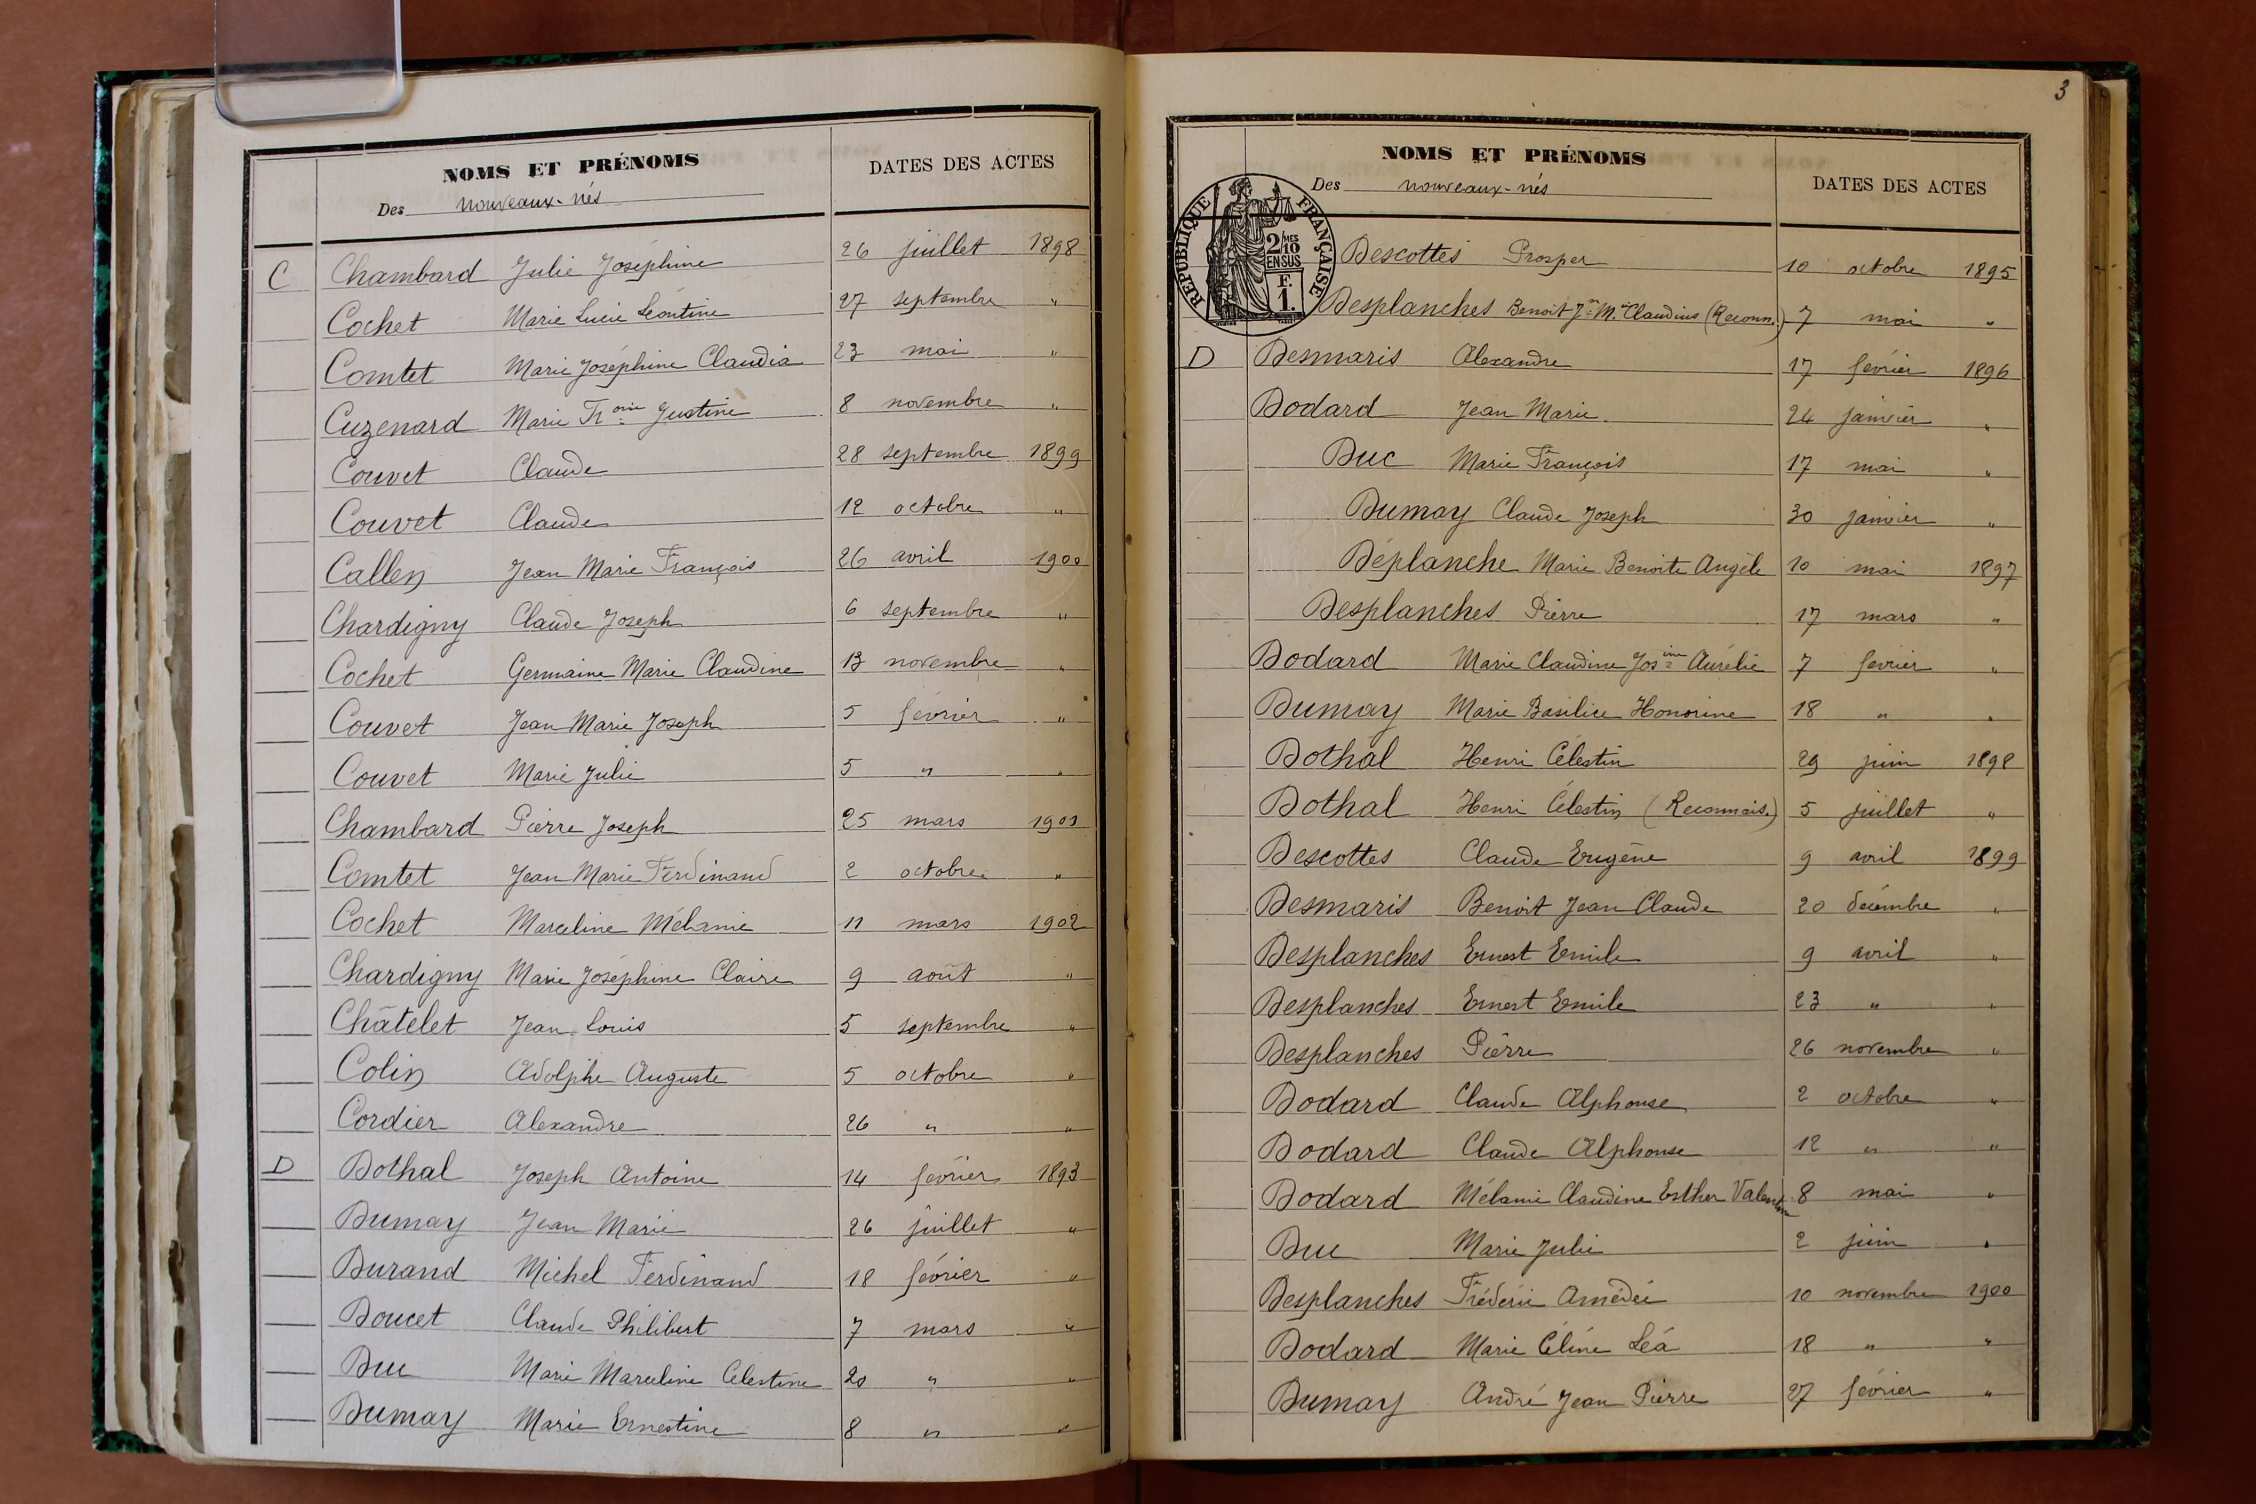 NOMS ET PRÉNOMS
Des nouveaux-nés
DATES DES ACTES
C Chambard Julie Joséphine 26 juillet 1898
Cochet Marie Lucie Léontine 27 septembre "
Comtet Marie Joséphine Claudia 23 mai "
Cuzenard Marie Fr.oise Justine 8 novembre "
Couvet Claude 28 septembre 1899
Couvet Claude 12 octobre "
Callen Jean Marie François 26 avril 1900
Chardigny Claude Joseph 6 septembre "
Cochet Germaine Marie Claudine 13 novembre "
Couvet Jean Marie Joseph 5 février "
Couvet Marie Julie 5 " "
Chambard Pierre Joseph 25 mars 1901
Comtet Jean Marie Ferdinand 2 octobre "
Cochet Marceline Mélanie 11 mars 1902
Chardigny Marie Joséphine Claire 9 août "
Châtelet Jean Louis 5 septembre "
Colin Adolphe Auguste 5 octobre "
Cordier Alexandre 26 " "
D Dothal Joseph Antoine 14 février 1893
Dumay Jean Marie 26 juillet "
Durand Michel Ferdinand 18 février "
Doucet Claude Philibert 7 mars "
Duc Marie Marceline Célestine 20 " "
Dumay Marie Ernestine 8 " "
3
NOMS ET PRÉNOMS
Des nouveaux-nés
DATES DES ACTES
RÉPUBLIQUE FRANÇAISE
2/10 MES
EN SUS
F.
1.
Descottes Prosper 10 octobre 1895
Desplanches Benoit J.n M.e Claudius (Reconn.) 7 mai "
D Desmaris Alexandre 17 février 1896
Dodard Jean Marie 24 janvier "
Duc Marie François 17 mai "
Dumay Claude Joseph 30 janvier "
Déplanche Marie Benoite Angèle 10 mai 1897
Desplanches Pierre 17 mars "
Dodard Marie Claudine Jos.ine Aurélie 7 février "
Dumay Marie Basilice Honorine 18 " "
Dothal Henri Célestin 29 juin 1898
Dothal Henri Célestin (Reconnais.) 5 juillet "
Descottes Claude Eugène 9 avril 1899
Desmaris Benoit Jean Claude 20 décembre "
Desplanches Ernest Emile 9 avril "
Desplanches Ernest Emile 23 " "
Desplanches Pierre 26 novembre "
Dodard Claude Alphonse 2 octobre "
Dodard Claude Alphonse 12 " "
Dodard Mélanie Claudine Esther Valentine 8 mai "
Duc Marie Julie 2 juin "
Desplanches Frédéric Amédée 10 novembre 1900
Dodard Marie Céline Léa 18 " "
Dumay André Jean Pierre 27 février "